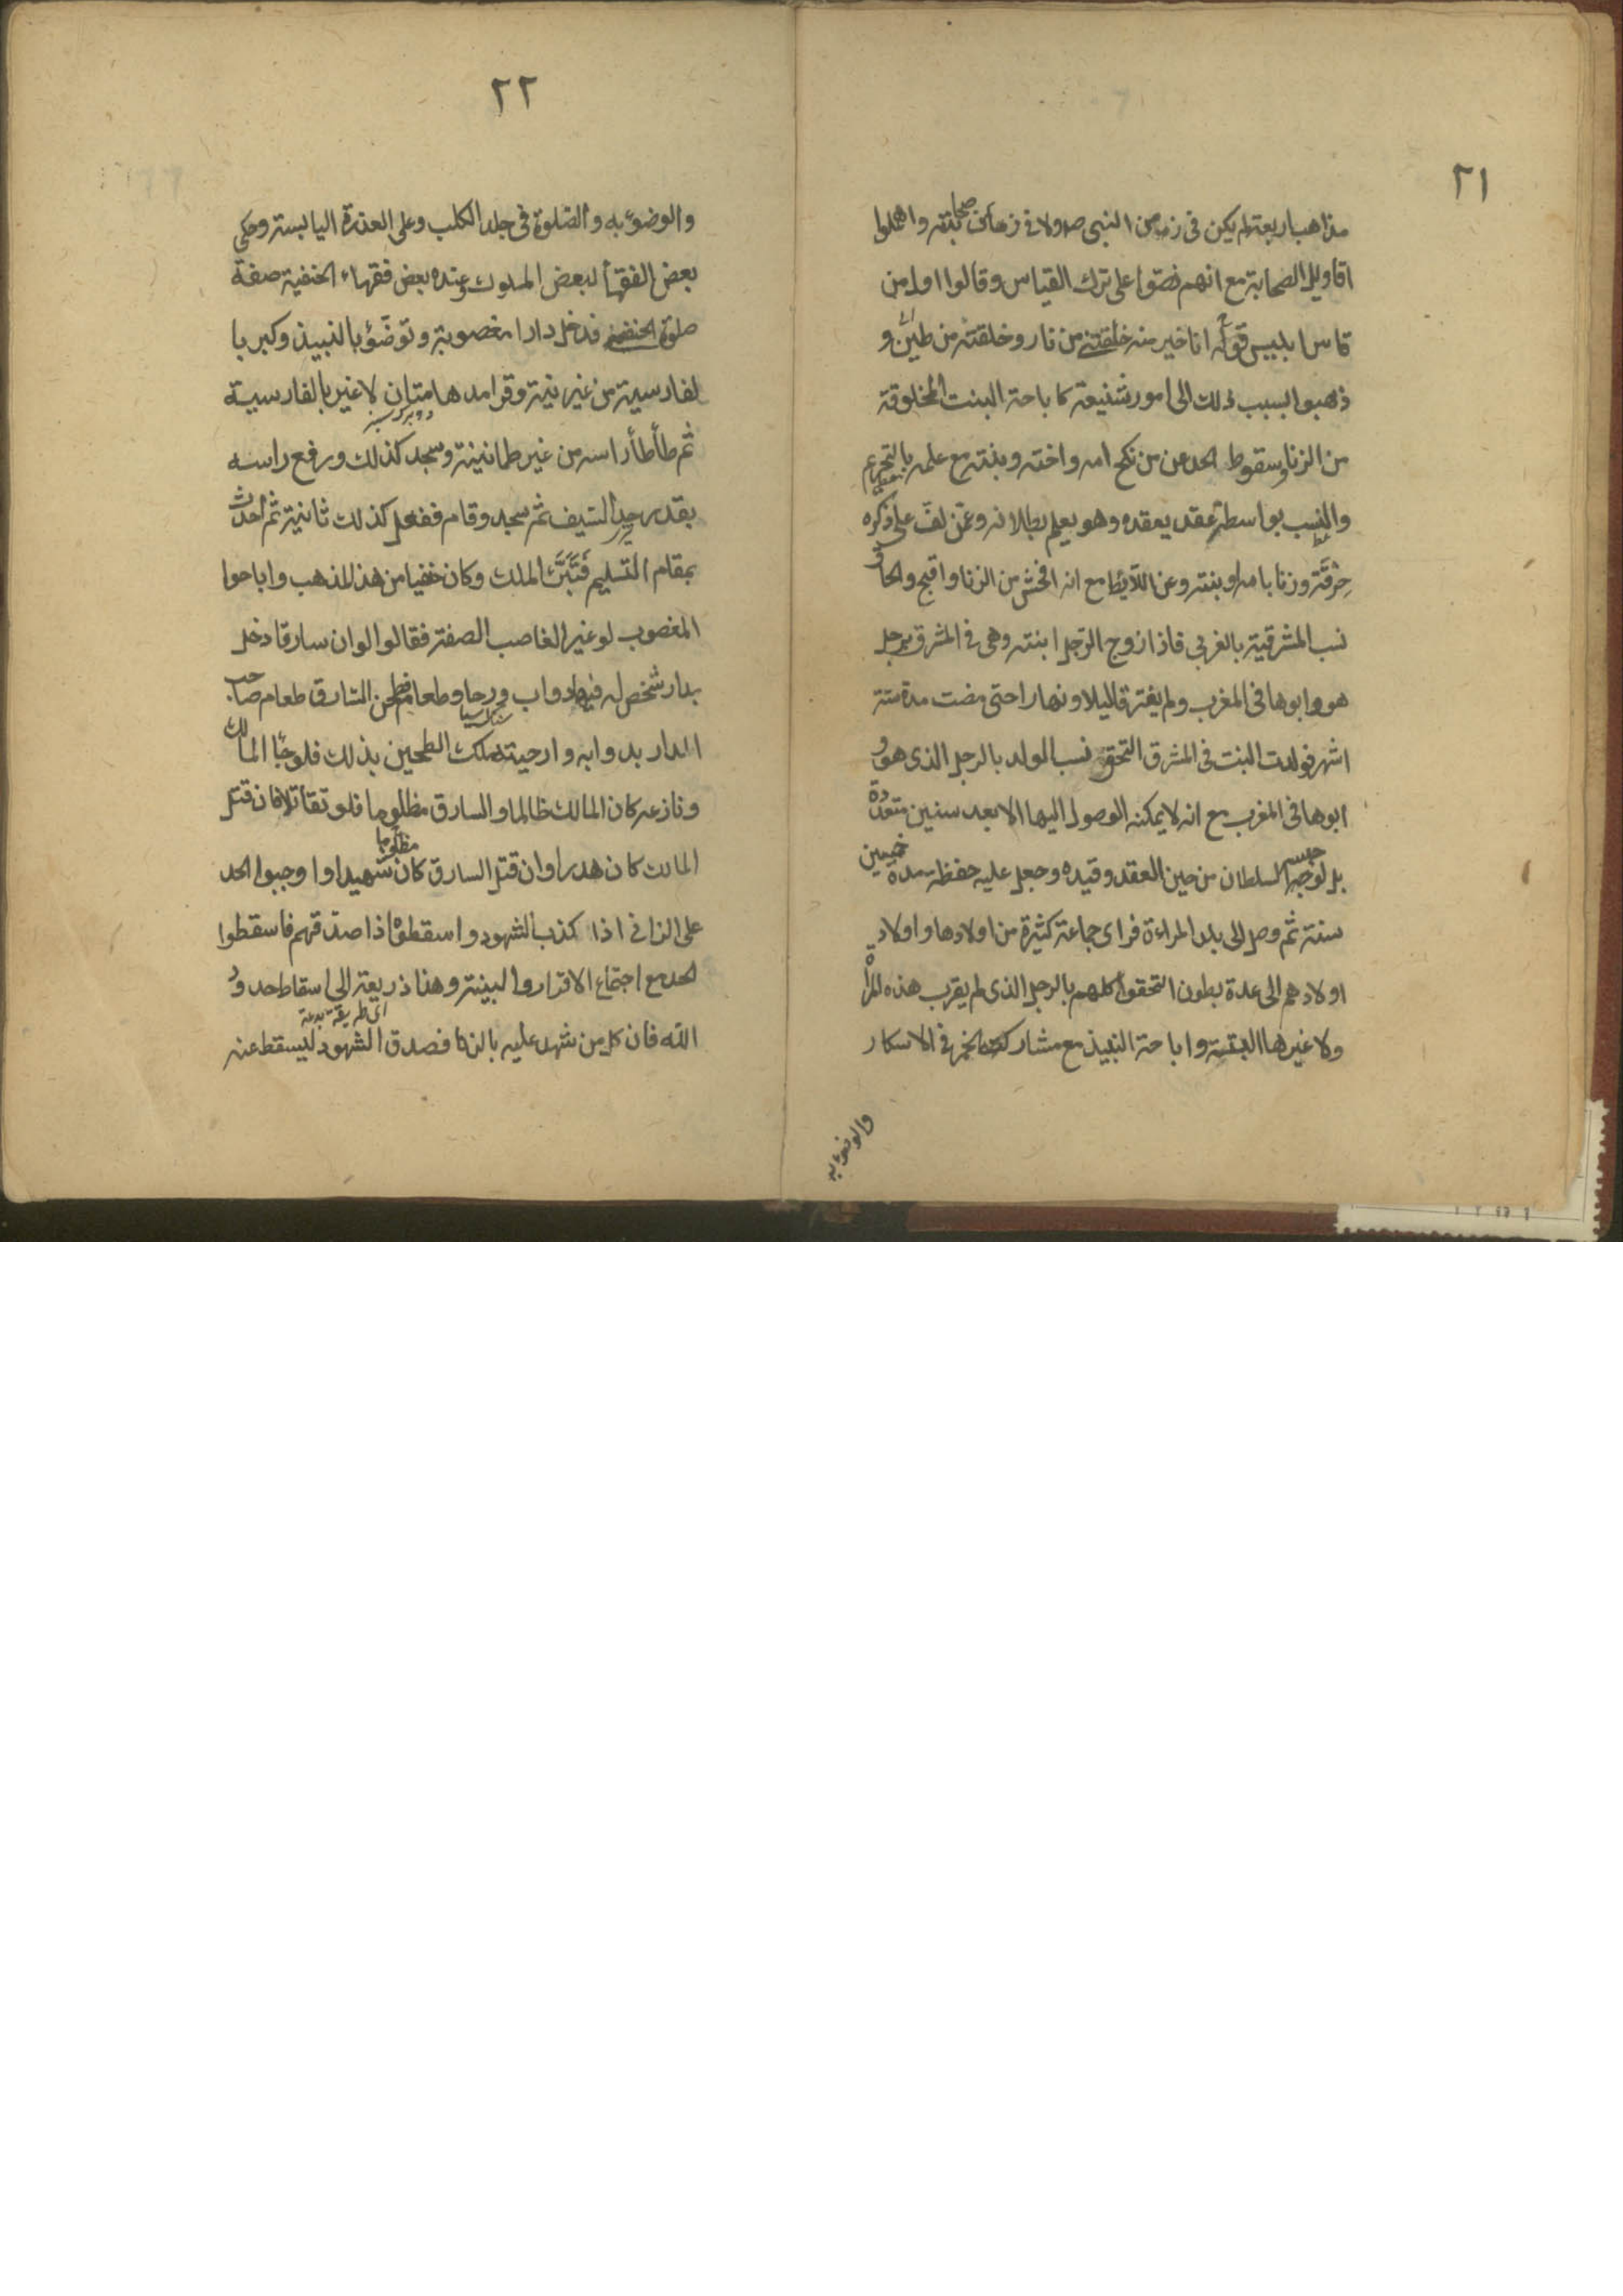 ٢١
مذاهب اربعة لم يكن فى زمن النبى ص ولا فى زمان صحابته واهملوا
اقاويل الصحابة مع انهم نصّوا على ترك القياس وقالوا اول من
قاس ابليس قوله انا خير منه خلقتنى من نار وخلقته من طين و
ذهبوا بسبب ذلك الى امور شنيعة كاباحة البنت المخلوقة
من الزنا وسقوط الحد عن من نكح امه واخته وبنته مع علمه بالتحريم
والنسب بواسطة عقد يعقده وهو يعلم بطلانه وعمّن لفّ على ذكره
خِرْقَة وزنا بامه او بنته وعن اللائط مع انه افحش من الزنا واقبح والحاق
نسب المشرقية بالغربى فاذا زوج الرّجل ابنته وهى فى المشرق برجل
هو وابوها فى المغرب ولم يفترقا ليلا ونهارا حتى مضت مدة ستة
اشهر فولدت البنت فى المشرق التحق نسب المولد بالرجل الذى هو و
ابوها فى المغرب مع انه لا يمكنه الوصول اليها الا بعد سنين متعددة
بل لو حبسه السلطان من حين العقد وقيده وجعل عليه حفظة مدة خمسين
سنة ثم وصل الى بلد المراءة فراى جماعة كثيرة من اولادها واولاد
اولادهم الى عدة بطون التحقوا كلهم بالرجل الذى لم يقرب هذه المرأة
ولا غيرها البتة واباحة النبيذ مع مشاركته الخمر فى الاسكار
والوضوء به
٢٢
والوضوء به والصّلوة فى جلد الكلب وعلى العذرة اليابسة وحكى
بعض الفقهأ لبعض الملوك وعنده بعض فقهاء الحنفية صفة
صلوة الحنفى فدخل دارا مغصوبة وتوضّؤ بالنبيذ وكبر با
لفارسية من غير نية وقرا مدهامتان لا غير بالفارسية
دو برك سبز
ثم طأطأ راسه من غير طمانينة وسجد كذلك ورفع راسه
بقدر حد السّيف ثم سجد وقام ففعل كذلك ثانية ثم احدث
بمقام التسليم فَتَبَرَّءَ الملك وكان حنفيا من هذا المذهب واباحوا
المغصوب لو غير الغاصب الصفة فقالوا لو ان سارقا دخل
بدار شخص له فيها دواب ورحا وطعام فطحن السّارق طعام صاحب
سنك آسيا
الدار بدوابه وارحيته ملك الطحين بذلك فلو جاء المالك
ونازعه كان المالك ظالما والسارق مظلوما فلو تقاتلا فان قتل
المالك كان هدرا وان قتل السارق كان شهيدا واوجبوا الحد
مظلوما
على الزانى اذا كذب الشهود واسقطوه اذا صدّقهم فاسقطوا
الحد مع اجتماع الاقرار والبينة وهذا ذريعة الى اسقاط حدود
الله فان كل من شهد عليه بالزنا فصدق الشهود ليسقط عنه